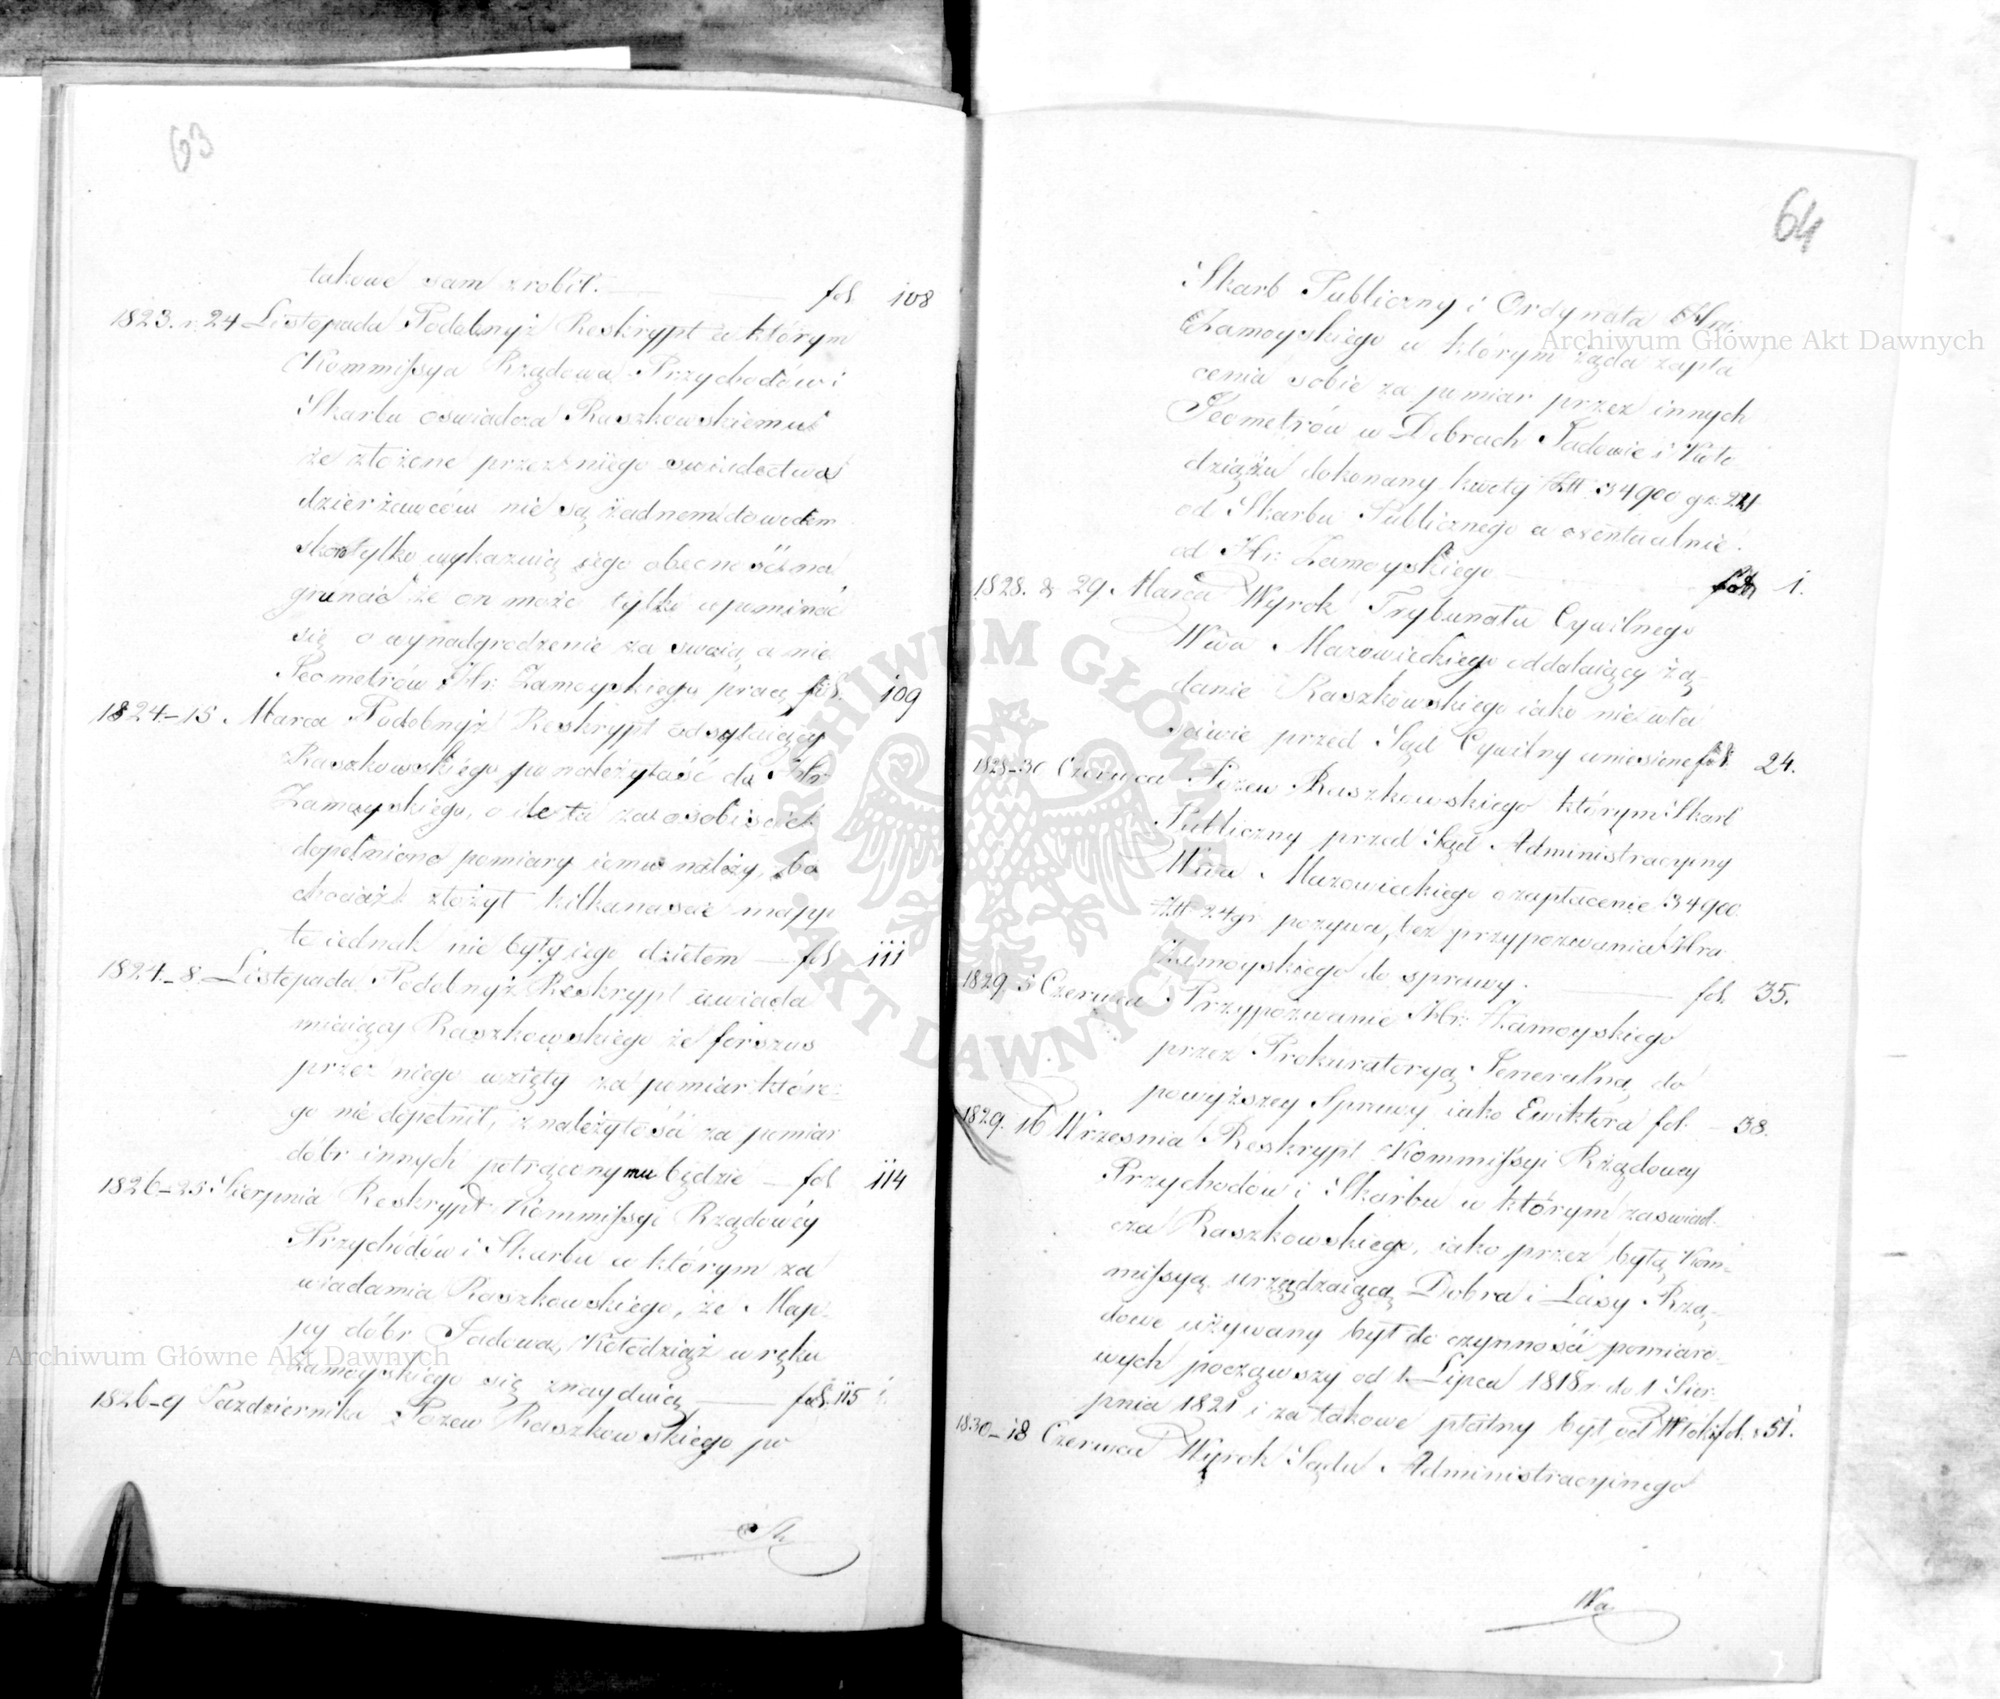 63
takowe sam zrobił. fol. 108
1823. r. 24 Listopada Podobnyż Reskrypt w którym
Kommissya Rządowa Przychodów i
Skarbu oswiadcza Raszkowskiemu
że złożone przez niego swiadectwa
dzierżawców nie są żadnem dowodem
skoro tylko wykazuią iego obecność na
gruncie że on może tylko upominać
się o wynadgrodzenie za swoią a nie
Jeometrów Hr: Zamoyskiego pracę fol. 109
1824–15 Marca Podobnyż Reskrypt odsyłaiący
Raszkowskiego po należytość do Hr:
Zamoyskiego, o ile ta za osobiście
dopełnione pomiary iemu należy, bo
chociaż złożył kilkanascie mapp
te iednak nie były iego dziełem — fol. 111
1824–8 Listopada Podobnyż Reskrypt uwiada
miaiący Raszkowskiego że forszus
przez niego wzięty za pomiar które-
go nie dopełnił, z należytości za pomiar
dóbr innych potrącony mu będzie — fol. 114
1826–25 Sierpnia Reskrypt Kommissyi Rządowey
Przychodów i Skarbu w którym za
wiadamia Raszkowskiego, że Map-
py dóbr Sadowa, Kołodziąż w ręku
Zamoyskiego się znayduią fol. 115
1826–9 Pazdziernika Pozew Raszkowskiego po
Sk
64
Skarb Publiczny i Ordynata Hra:
Zamoyskiego w którym żąda zapła
cenia sobie za pomiar przez innych
Jeometrów w Dobrach Sadowie i Koło
dziążu dokonany kwoty Złł 34900 gr. 24
od Skarbu Publicznego a ewentualnie
od Hr: Zamoyskiego fol. 1.
1828. d. 29 Marca Wyrok Trybunału Cywilnego
Wwa Mazowieckiego oddalaiący żą-
danie Raszkowskiego iako niewła
sciwie przed Sąd Cywilny wniesione fol. 24.
1828–30 Czerwca Pozew Raszkowskiego którym Skarb
Publiczny przed Sąd Administracyiny
Wwa Mazowieckiego o zapłacenie 34900
Złł 24 gr pozywa, bez przypozwania Hra
Zamoyskiego do sprawy. fol. 35.
1829 5 Czerwca Przypozwanie Hr: Zamoyskiego
przez Prokuratoryą Jeneralną do
powyższey Sprawy iako Ewiktora fol. — 38.
1829. 16 Wrzesnia Reskrypt Kommissyi Rządowey
Przychodów i Skarbu w którym zaswiad-
cza Raszkowskiego, iako przez byłą Kom-
missyą urządzaiącą Dobra i Lasy Rzą-
dowe używany był do czynności pomiaro-
wych począwszy od 1. Lipca 1818 r. do 1 Sier-
pnia 1821 i za takowe płatny był od Włoki fol. 51.
1830–18 Czerwca Wyrok Sądu Administracyinego
Wa
Archiwum Główne Akt Dawnych
Archiwum Główne Akt Dawnych
ARCHIWUM GŁÓWNE AKT DAWNYCH